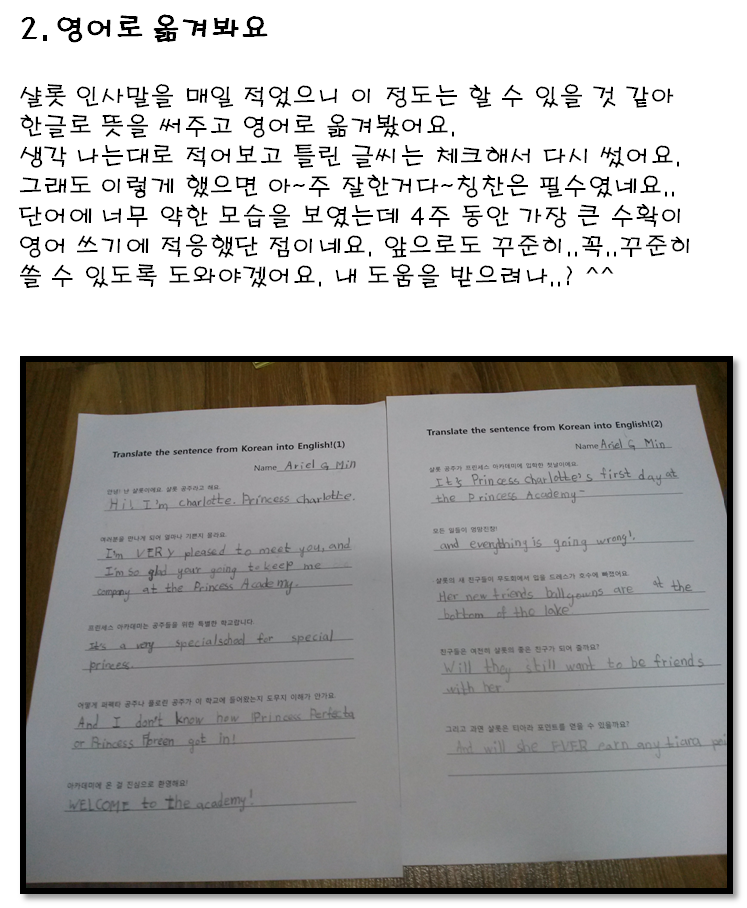 2. 영어로 옮겨봐요
샬롯 인사말을 매일 적었으니 이 정도는 할 수 있을 것 같아
한글로 뜻을 써주고 영어로 옮겨봤어요.
생각 나는대로 적어보고 틀린 글씨는 체크해서 다시 썼어요.
그래도 이렇게 했으면 아~주 잘한거다~칭찬은 필수였네요..
단어에 너무 약한 모습을 보였는데 4주 동안 가장 큰 수확이
영어 쓰기에 적응했단 점이네요. 앞으로도 꾸준히..꼭..꾸준히
쓸 수 있도록 도와야겠어요. 내 도움을 받으려나..? ^^
Translate the sentence from Korean into English!(1)
Name Ariel G Min
안녕! 난 샬롯이에요. 샬롯 공주라고 해요.
Hi! I'm charlotte. Princess charlotte.
여러분을 만나게 되어 얼마나 기쁜지 몰라요.
I'm VERY pleased to meet you, and
I'm so glad your going to keep me
company at the Princess Academy.
프린세스 아카데미는 공주들을 위한 특별한 학교랍니다.
Its a very special school for special
princess.
어떻게 퍼펙타 공주나 플로린 공주가 이 학교에 들어왔는지 도무지 이해가 안가요.
And I don't know how Princess Perfecta
or Princess Floreen got in!
아카데미에 온 걸 진심으로 환영해요!
WELCOME to the academy!
Translate the sentence from Korean into English!(2)
Name Ariel G Min
샬롯 공주가 프린세스 아카데미에 입학한 첫날이에요.
It's Princess Charlotte's first day at
the Princess Academy-
모든 일들이 엉망진창!
and everything is going wrong!.
샬롯의 새 친구들이 무도회에서 입을 드레스가 호수에 빠졌어요.
Her new friends ballgowns are at the
bottom of the lake
친구들은 여전히 샬롯의 좋은 친구가 되어 줄까요?
Will they still want to be friends
with her
그리고 과연 샬롯은 티아라 포인트를 얻을 수 있을까요?
And will she EVER earn any tiara poi